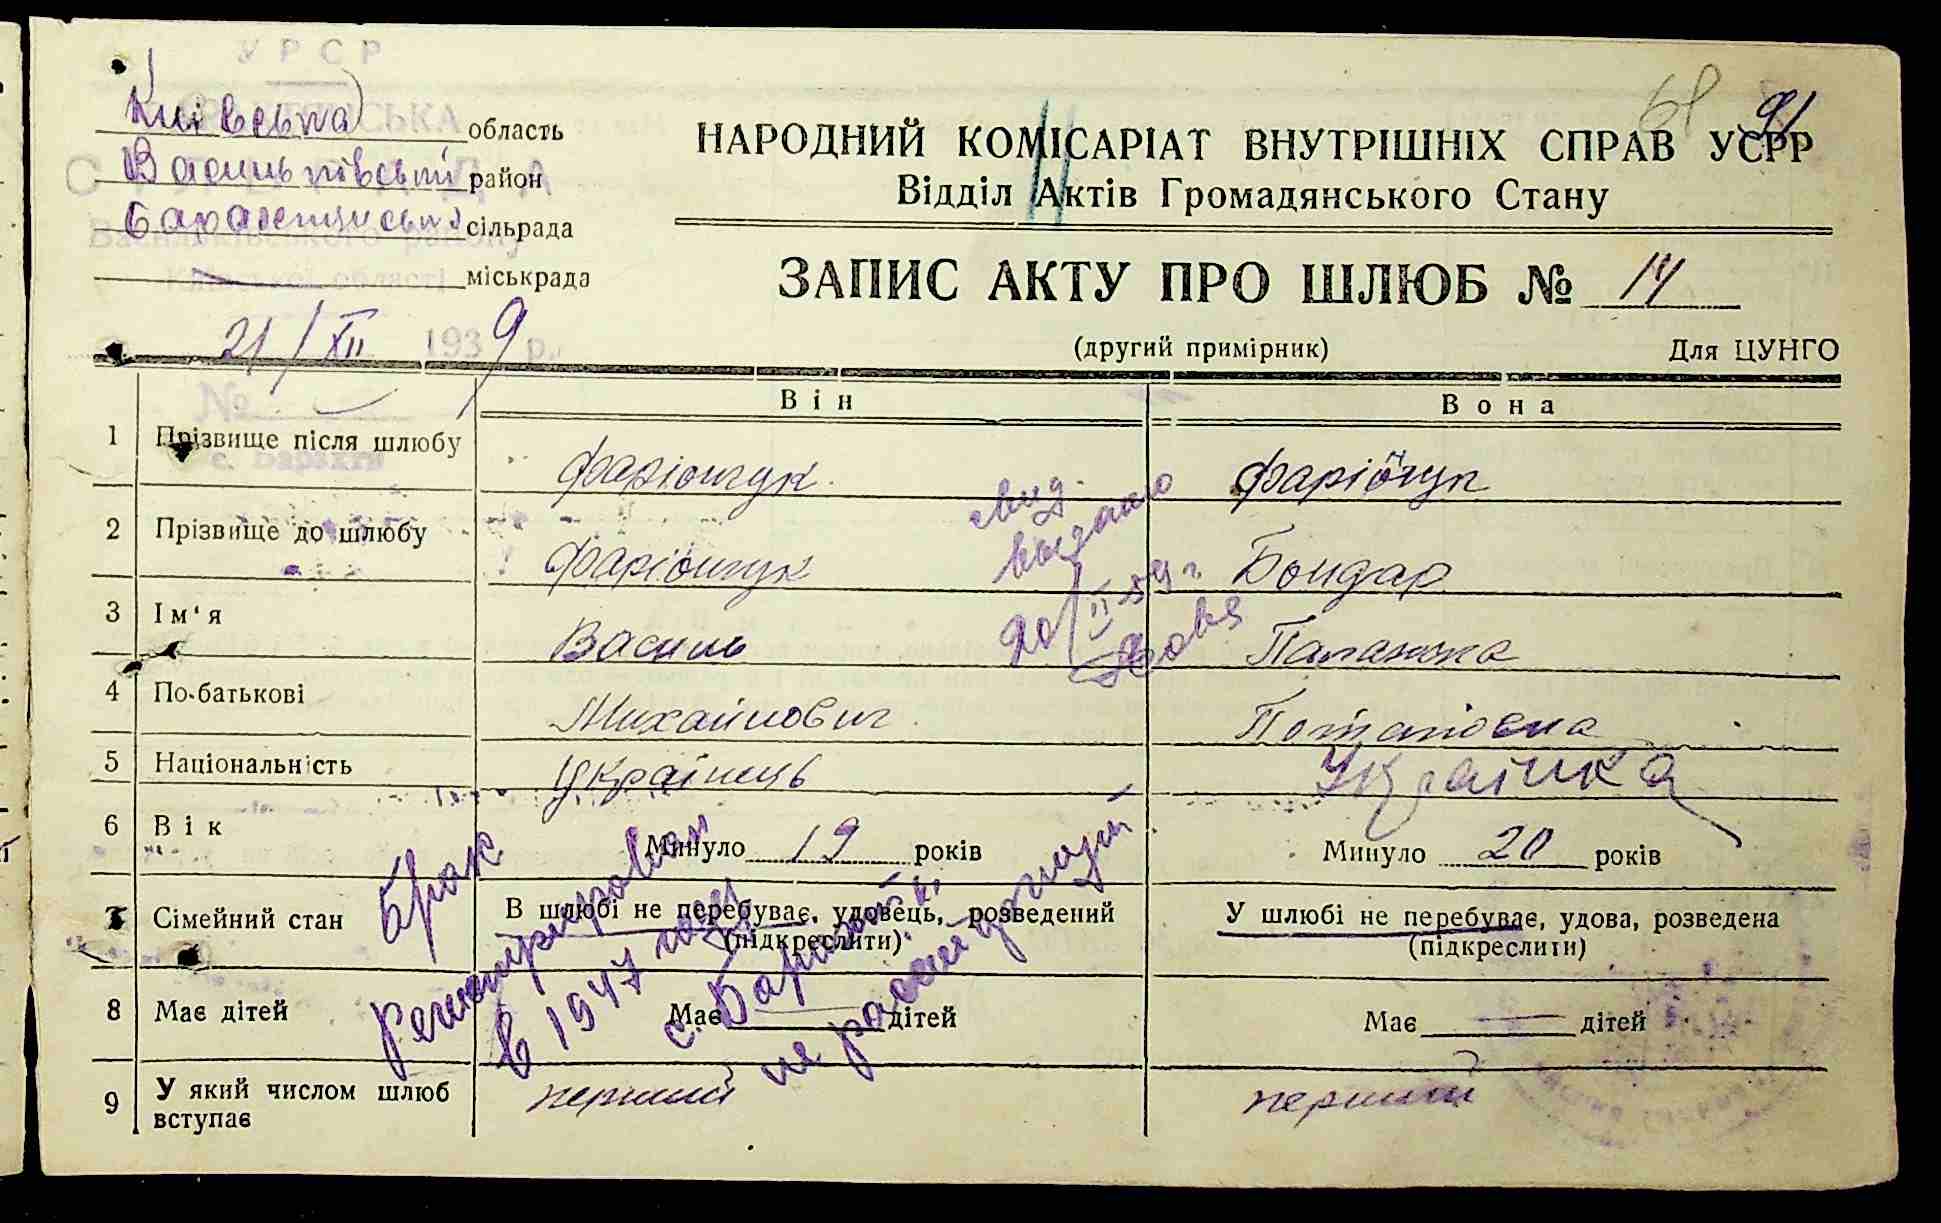 УРСР
Київська область
Васильківський район
Барахтинська сільрада
міськрада
21/XII 1939 р.
№
с. Барахти
68 91
НАРОДНИЙ КОМІСАРІАТ ВНУТРІШНІХ СПРАВ УСРР
Відділ Актів Громадянського Стану
ЗАПИС АКТУ ПРО ШЛЮБ № 14
(другий примірник) Для ЦУНГО
Він Вона
1 Прізвище після шлюбу Фаріончук Фаріончук
2 Прізвище до шлюбу Фаріончук Бондар
3 Ім'я Василь Палажка
4 По-батькові Михайлович Потаповна
5 Національність Українець Українка
6 Вік Минуло 19 років Минуло 20 років
7 Сімейний стан В шлюбі не перебуває, удовець, розведений (підкреслити) У шлюбі не перебуває, удова, розведена (підкреслити)
8 Має дітей Має дітей Має дітей
9 У який числом шлюб вступає перший перший
свид.
выдано
20/II-59 г
Брак
Регистрирован
в 1947 году
с. Барахты
не